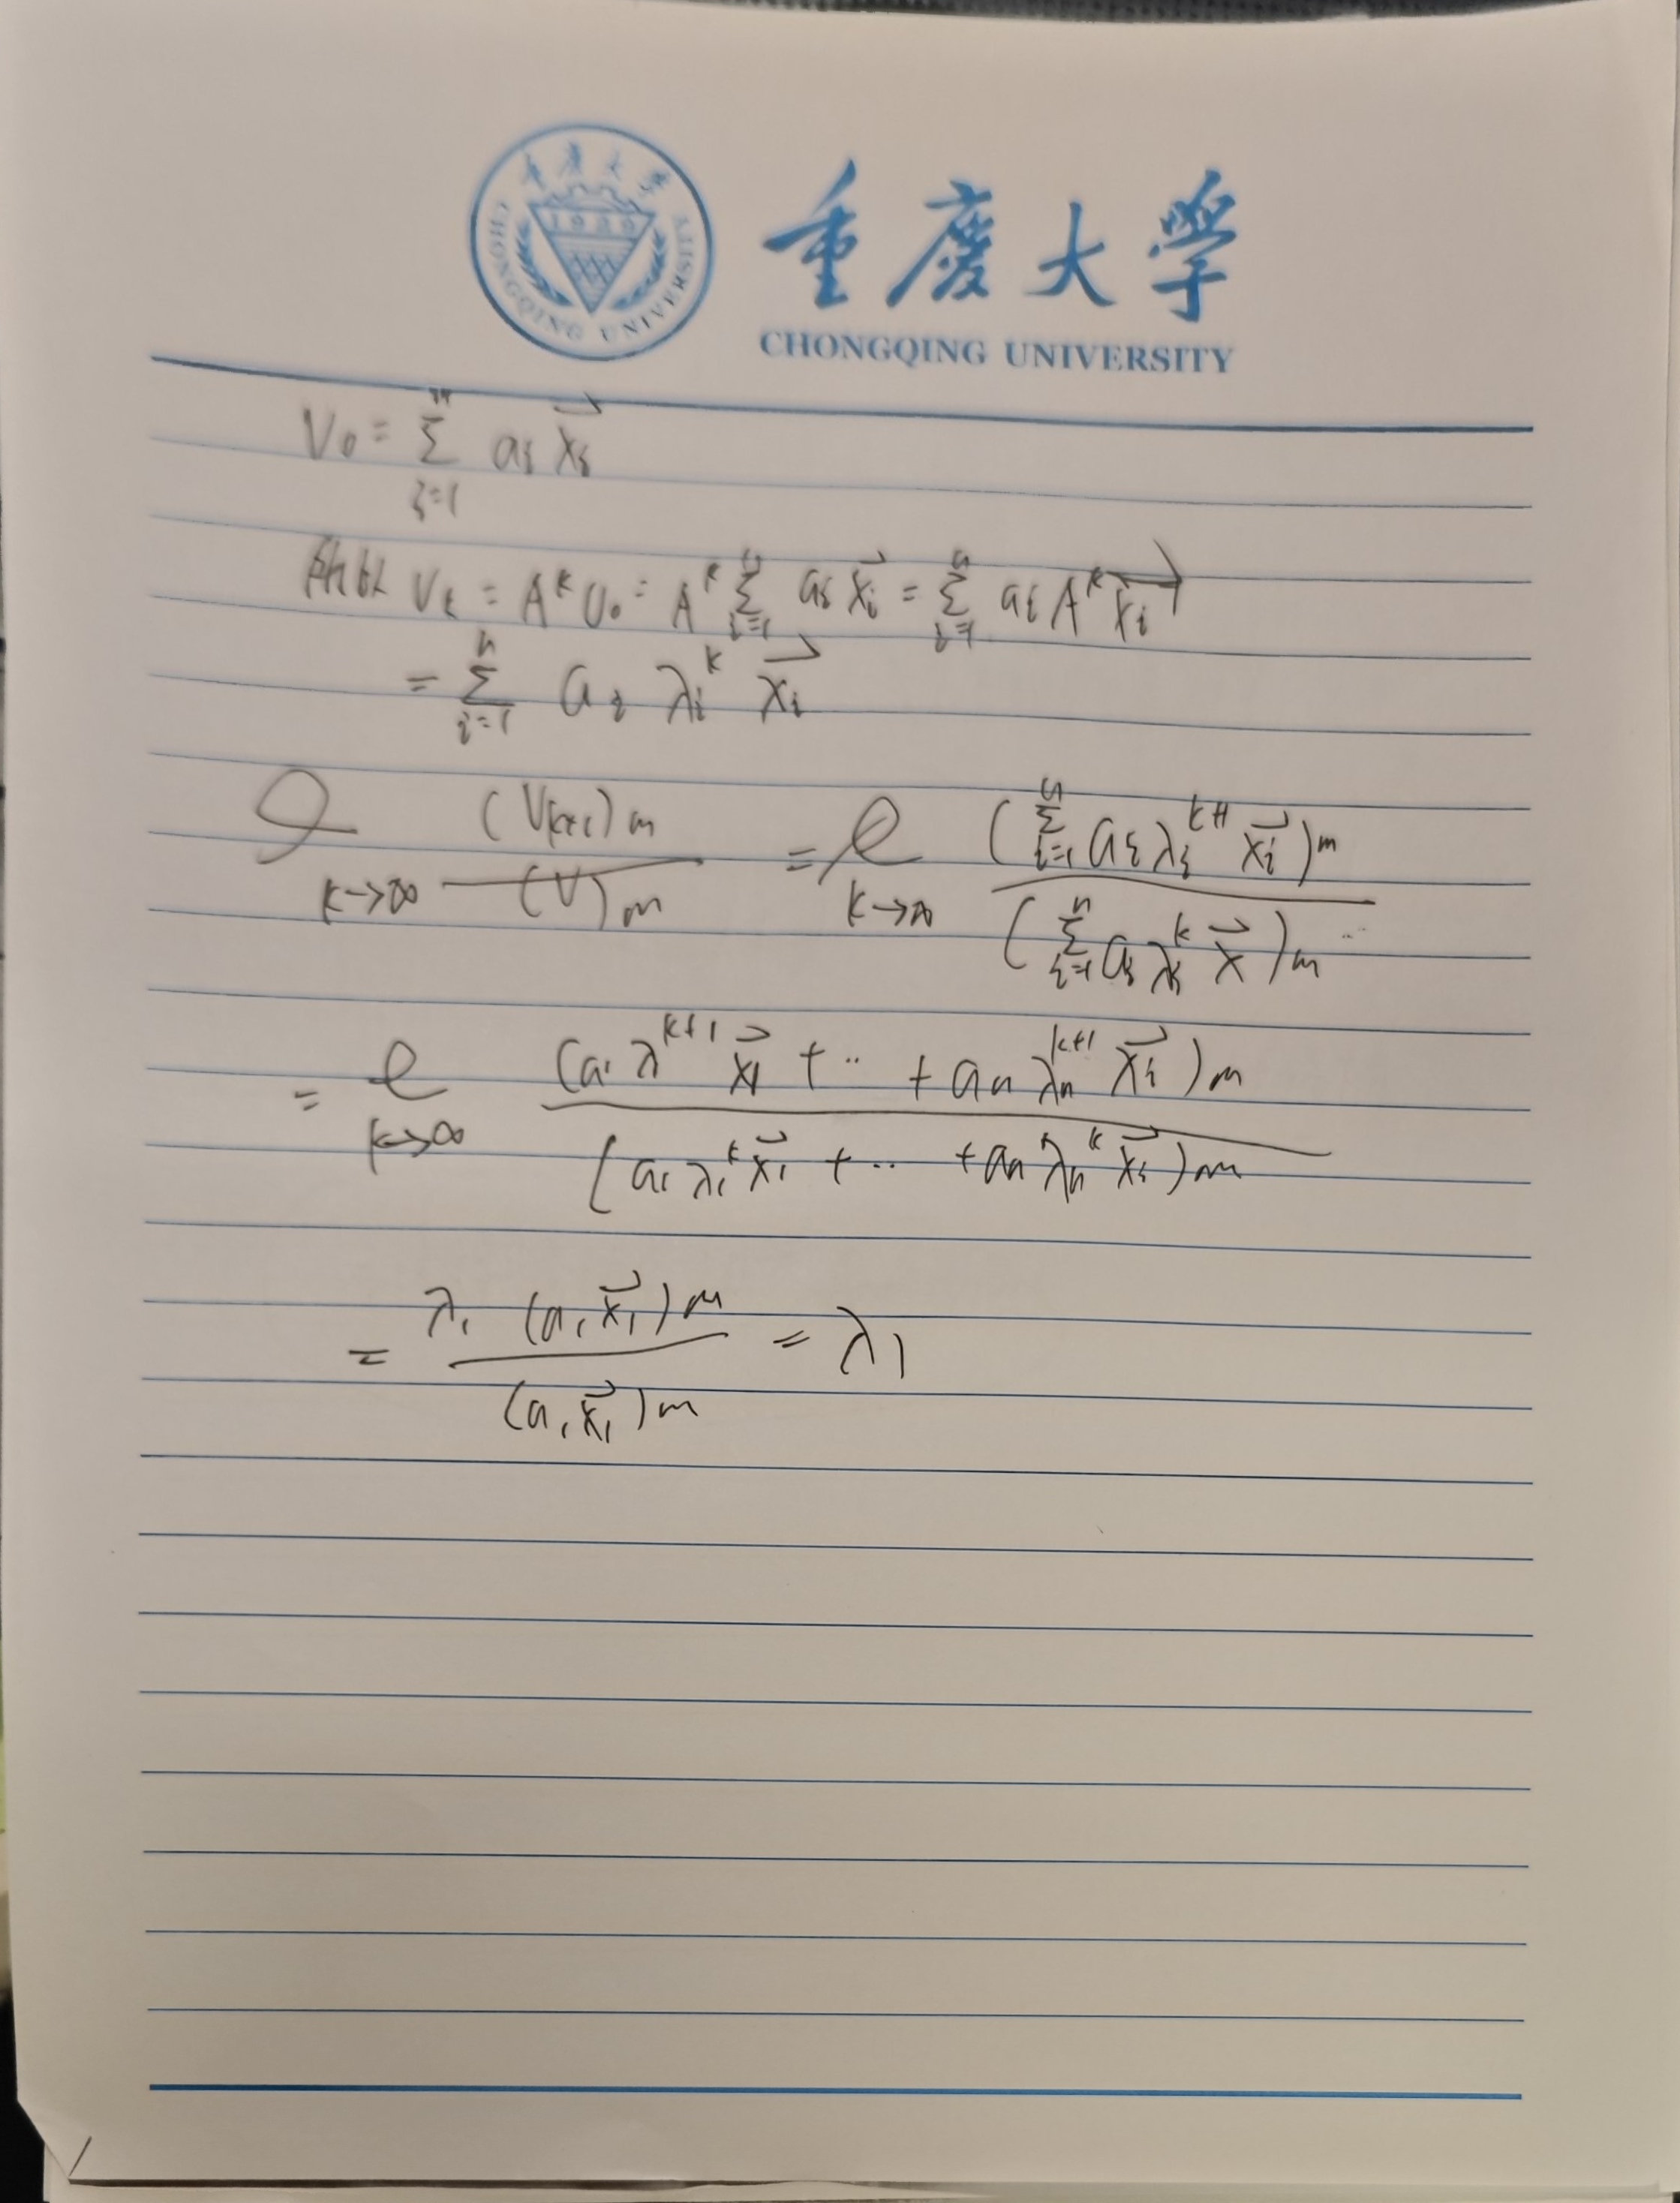 重庆大学
CHONGQING UNIVERSITY
1929
重慶大學
CHONGQING UNIVERSITY
V₀ = Σ_{i=1}^{n} aᵢ x⃗ᵢ
所以 Vₖ = Aᵏ V₀ = Aᵏ Σ_{i=1}^{n} aᵢ x⃗ᵢ = Σ_{i=1}^{n} aᵢ Aᵏ x⃗ᵢ
= Σ_{i=1}^{n} aᵢ λᵢᵏ x⃗ᵢ
ℓ_{k→∞} (V_{k+1})m / (V)m = ℓ_{k→∞} (Σ_{i=1}^{n} aᵢ λᵢ^{k+1} x⃗ᵢ)m / (Σ_{i=1}^{n} aᵢ λᵢᵏ x⃗)m
= ℓ_{k→∞} (a₁ λ^{k+1} x⃗₁ + ·· + aₙ λₙ^{k+1} x⃗ᵢ)m / (a₁ λ₁ᵏ x⃗₁ + ·· + aₙ λₙᵏ x⃗ᵢ)m
= λ₁ (a₁ x⃗₁)m / (a₁ x⃗₁)m = λ₁